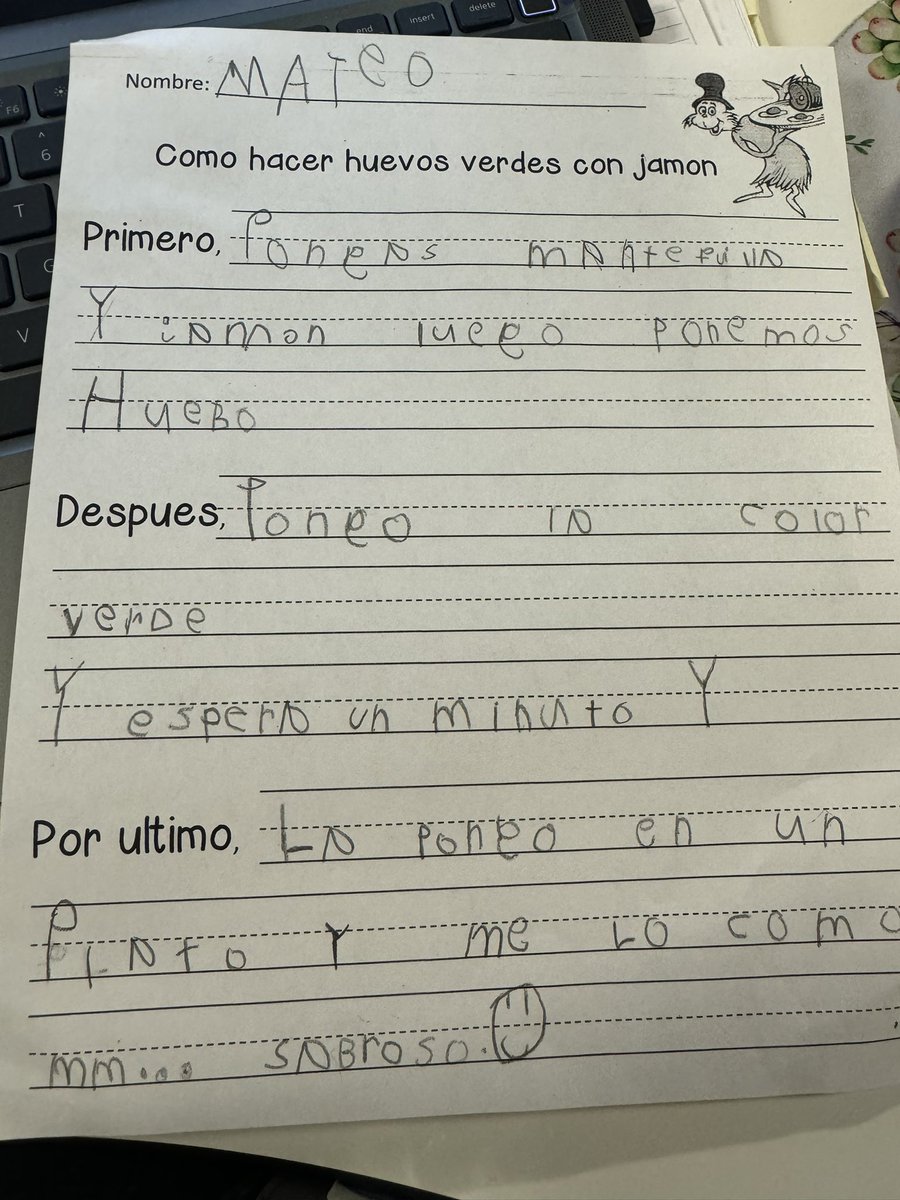 Nombre: MATEO
Como hacer huevos verdes con jamon
Primero, Poneas manteguilla
Y jamon luego ponemos
HueBo
Despues, Pongo la color
verde
Y espera un minuto Y
Por ultimo, La pongo en un
Plato Y me Lo como
mm... saBroso.
insert
delete
end
F6
6
T
G
V